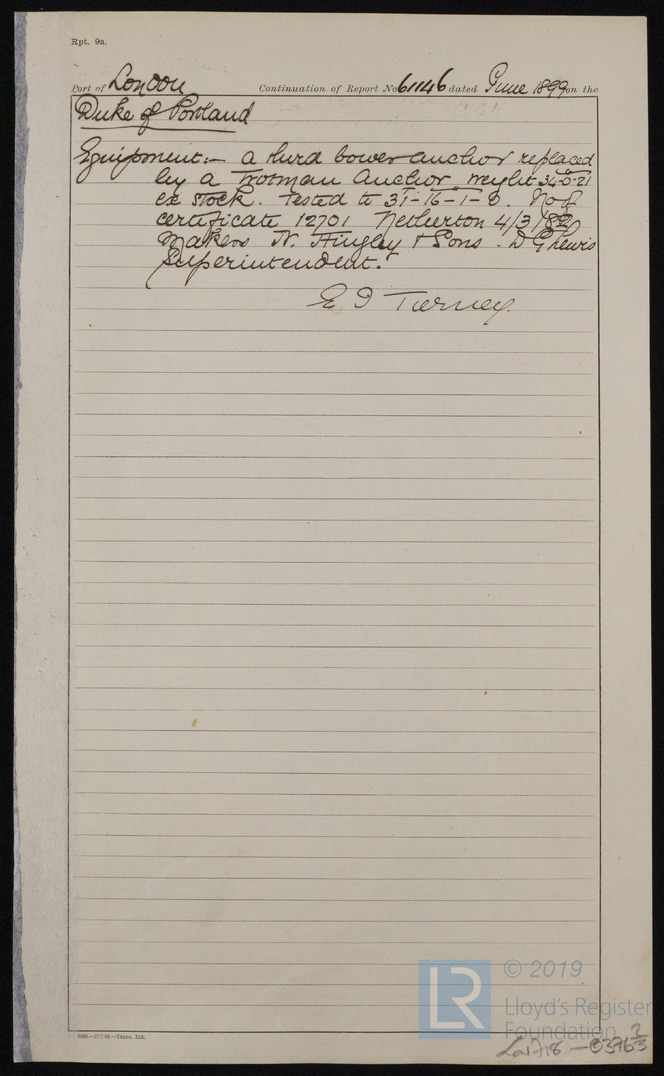 Rpt. 9a.
Port of London Continuation of Report No 61146 dated June 1899 on the
Duke of Portland
Equipment:- a third bower anchor replaced
by a Trotman Anchor weight 34-0-21
ex stock. Tested to 31-16-1-0. No of
certificate 12701 Netherton 4/3/82
Makers N. Hingley & Sons. D G Lewis
Superintendent.
E J Tierney
1000.—27/7/98.—Trans. Ink.
© 2019
Lloyd's Register
Foundation